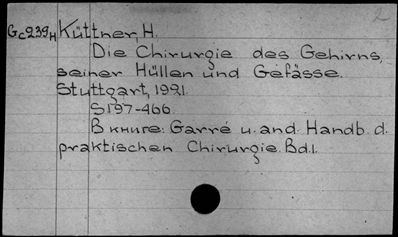 Gc239H Küttner, H.
Die Chirurgie des Gehirns,
seiner Hüllen und Gefässe.
Stuttgart, 1921.
S197-466.
В книге: Garré u. and. Handb. d.
praktischen Chirurgie. Bd. I.
2